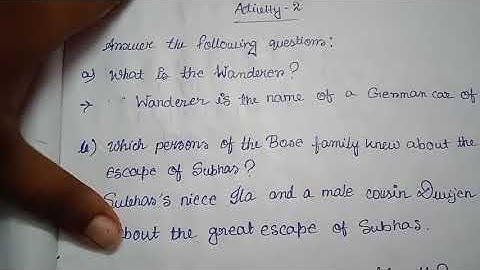 Activity-2
Answer the following questions:
a) What is the Wanderer?
→ Wanderer is the name of a German car of
b) Which persons of the Bose family knew about the
escape of Subhas?
Subhas's niece Ila and a male cousin Dwijen
about the great escape of Subhas.